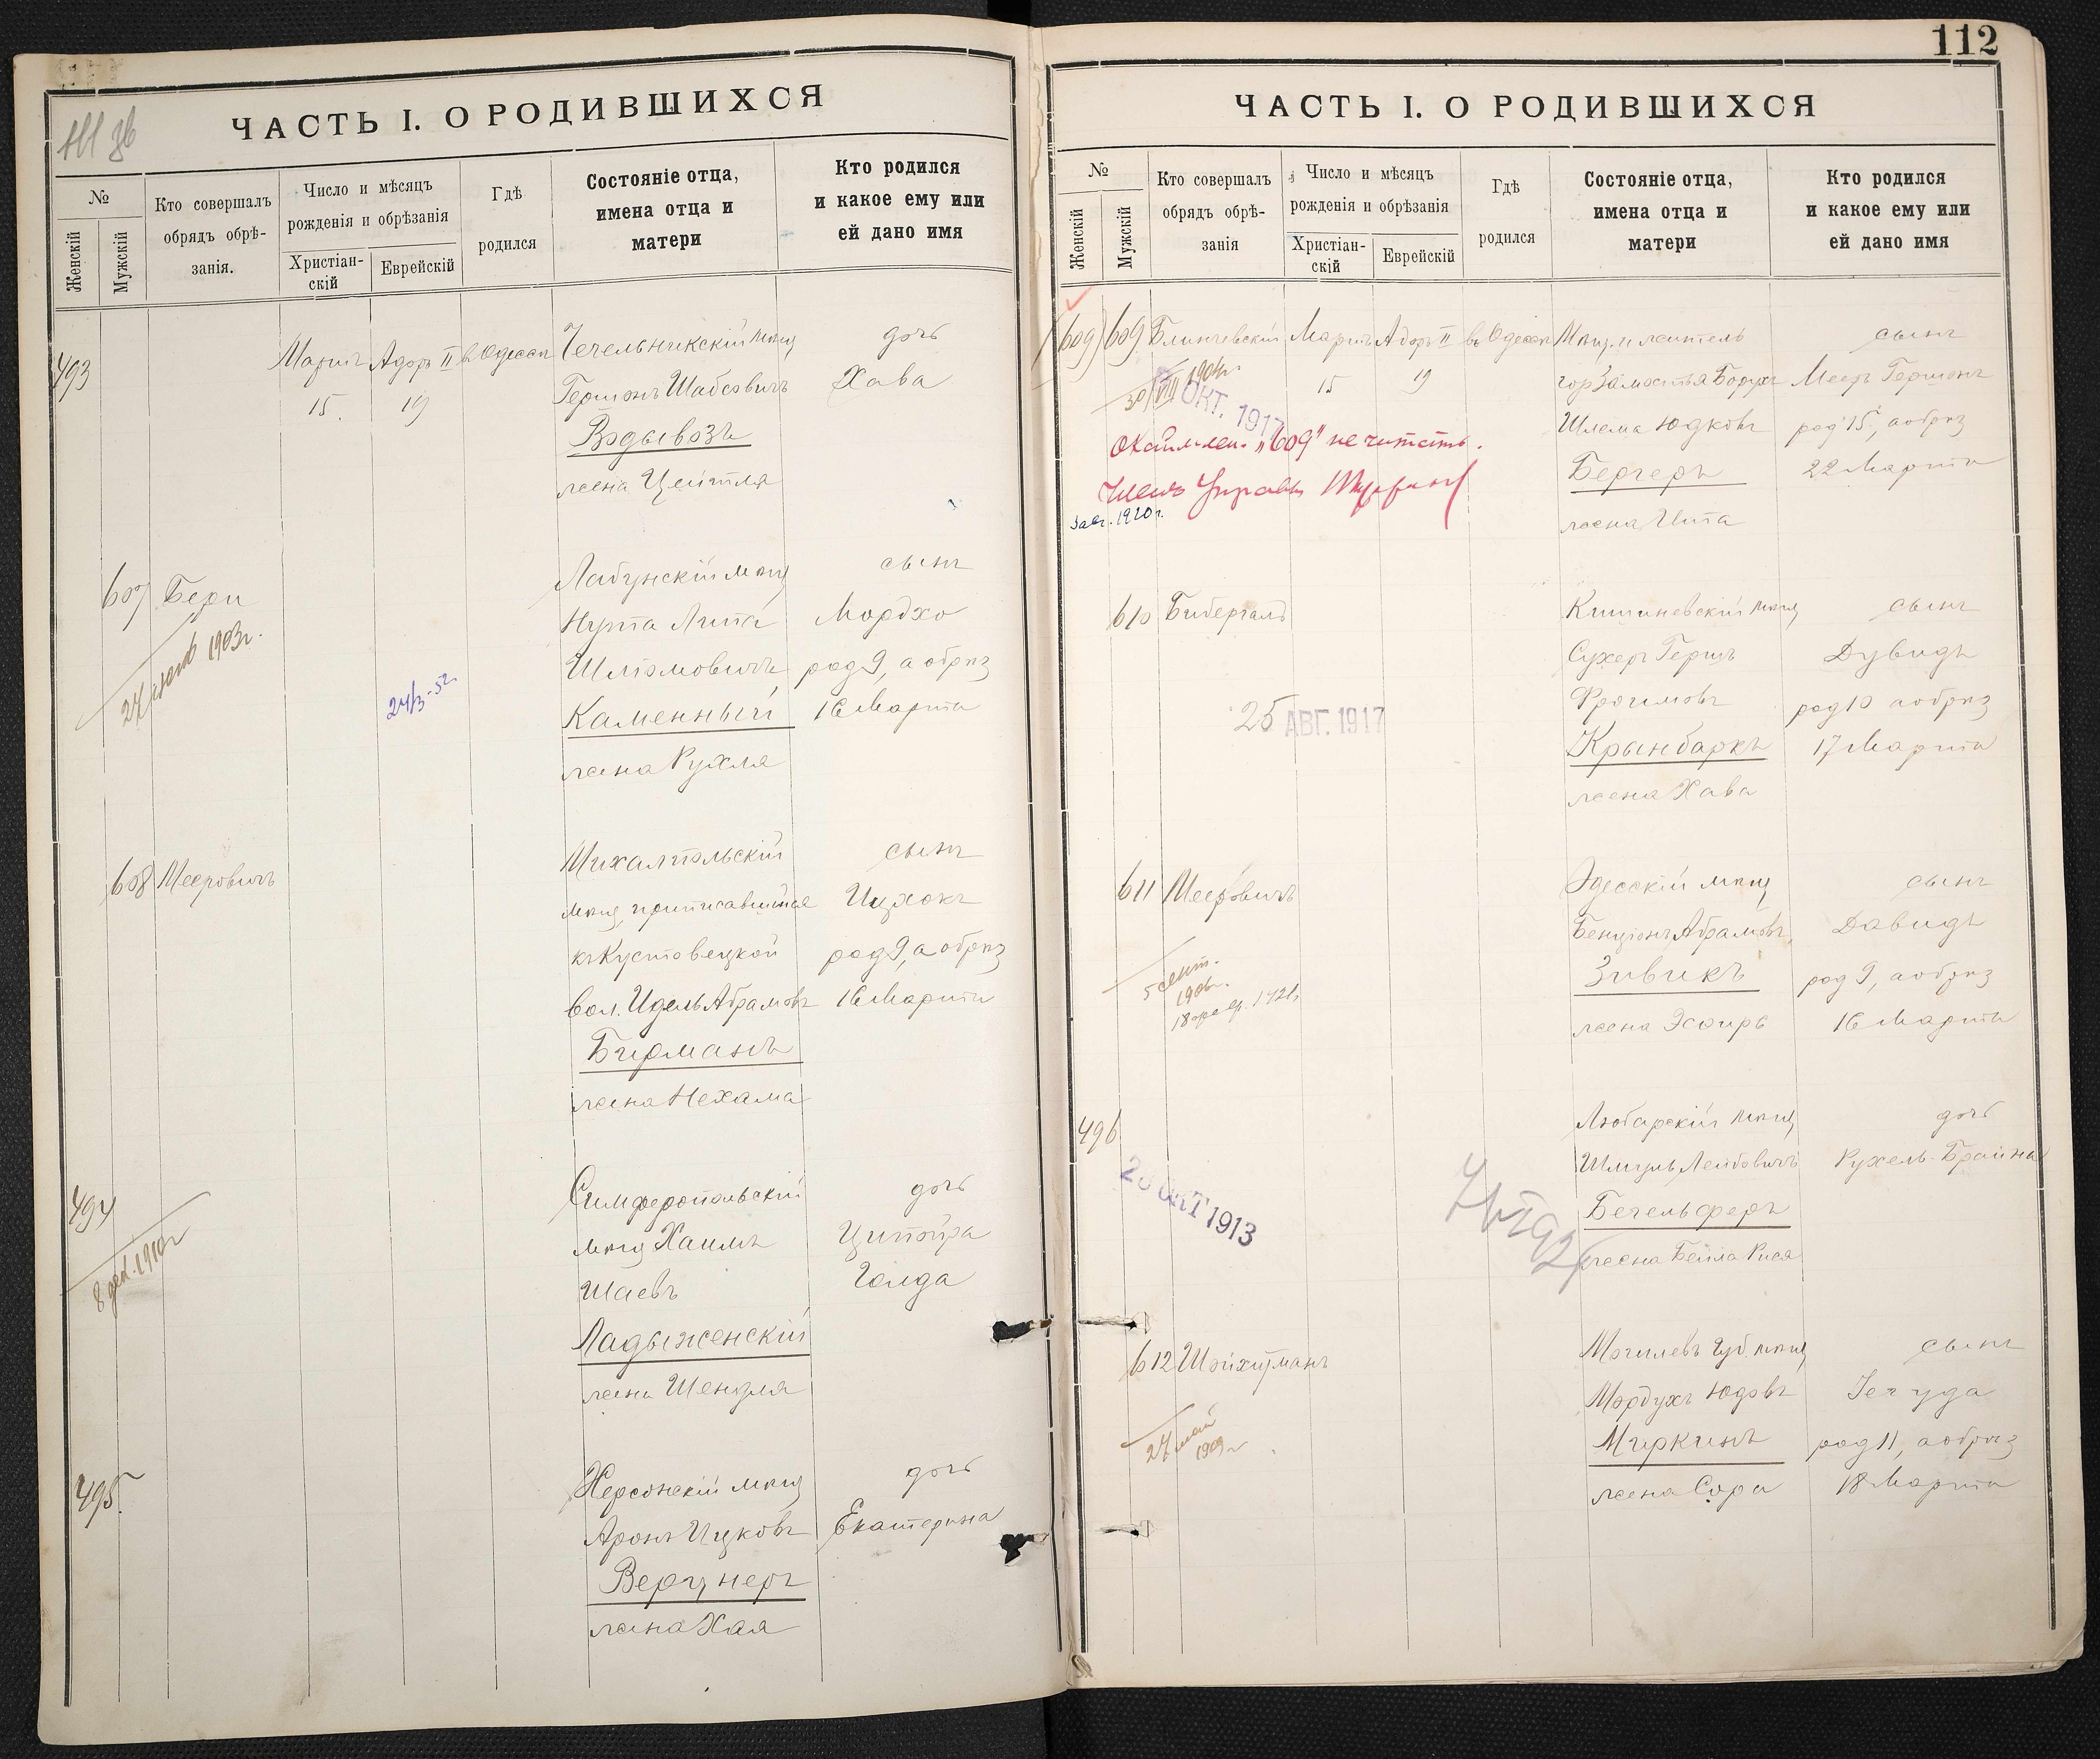 112
ЧАСТЬ I. О РОДИВШИХСЯ
№
Женскій
Мужскій
Кто совершалъ
обрядъ обрѣ-
занія.
Число и мѣсяцъ
рожденія и обрѣзанія
Христіан-
скій
Еврейскій
Гдѣ
родился
Состояніе отца,
имена отца и
матери
Кто родился
и какое ему или
ей дано имя
493
Мартъ Адоръ II въ Одессѣ Чечельникскій мѣщ дочь
15. 19 Гершонъ Шабсовичъ Хава
Водывозъ
жена Цейтля
607 Бери Лабунскій мѣщ сынъ
Нута Липа Мордхо
24 1903г. Шліомовичъ род 9, а обрѣз
24/3-52. Каменный 16 Марта
жена Рухля
608 Мееровичъ Михалпольскій сынъ
мѣщ приписавшійся Ицхокъ
къ Кустовецкой род 9, а обрѣз
вол. Идель Абрамовъ 16 Марта
Бирманъ
жена Нехама
494 Симферопольскій дочь
мѣщ Хаимъ Ципойра
8 дек. 1910г Шаевъ Голда
Ладыженскій
жена Шендля
495. Херсонскій мѣщ дочь
Аронъ Ицковъ Екатерина
Верцнеръ
жена Хая
ЧАСТЬ I. О РОДИВШИХСЯ
№
Женскій
Мужскій
Кто совершалъ
обрядъ обрѣ-
занія
Число и мѣсяцъ
рожденія и обрѣзанія
Христіан-
скій
Еврейскій
Гдѣ
родился
Состояніе отца,
имена отца и
матери
Кто родился
и какое ему или
ей дано имя
(609) 609 Блинчевскій Мартъ Адоръ II въ Одессѣ Мѣщ. и житель сынъ
30/VIII 1904г. 15 19 гор Замостья Борухъ Мееръ Гершонъ
ОКТ. 1917 Шлема Юдковъ род 15, а обрѣз
"609" не читать. Бергеръ 22 Марта
Членъ Управы
3 авг. 1920г. жена Ита
610 Бибергалъ Кишиневскій мѣщ сынъ
Сухеръ Герцъ Дувидъ
25 АВГ. 1917 Фроимовъ род 10 а обрѣз
Крынбаркъ 17 Марта
жена Хава
611 Мееровичъ Одесскій мѣщ сынъ
Бенціонъ Абрамовъ Давидъ
5 сент. Зивикъ род 9, а обрѣз
1906г. жена Эсфирь 16 Марта
496 Любарскій мѣщ дочь
Шмуль Лейбовичъ Рухель-Брайна
ОКТ 1913 Бегельферъ
жена Бейла Рися
612 Шойхитманъ Могилевъ губ. мѣщ сынъ
Мордухъ Юдовъ Іегуда
27 май Миркинъ род 11, а обрѣз
1909г жена Сора 18 Марта